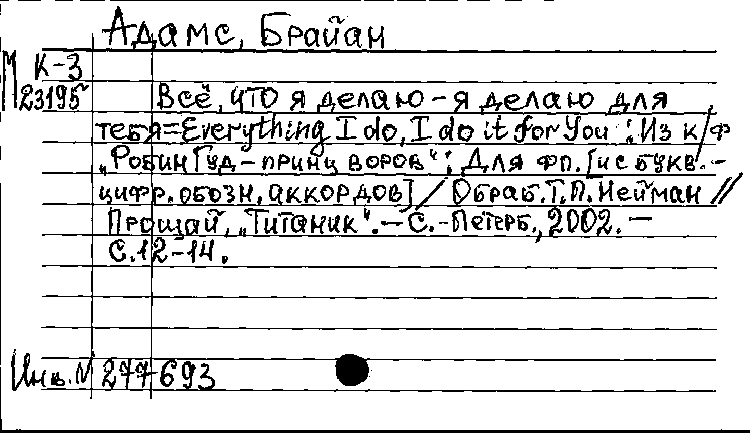 Адамс, Брайан
М К-3
23195
Всё, что я делаю - я делаю для
тебя = Everything I do, I do it for You : Из к/ф
„Робин Гуд - принц воров“ ; Для фп. [и с букв.-
цифр. обозн. аккордов] / Обраб. Т.П. Нейман //
Прощай, „Титаник“. - С.-Петерб., 2002. -
С. 12-14.
Инв. N 277693